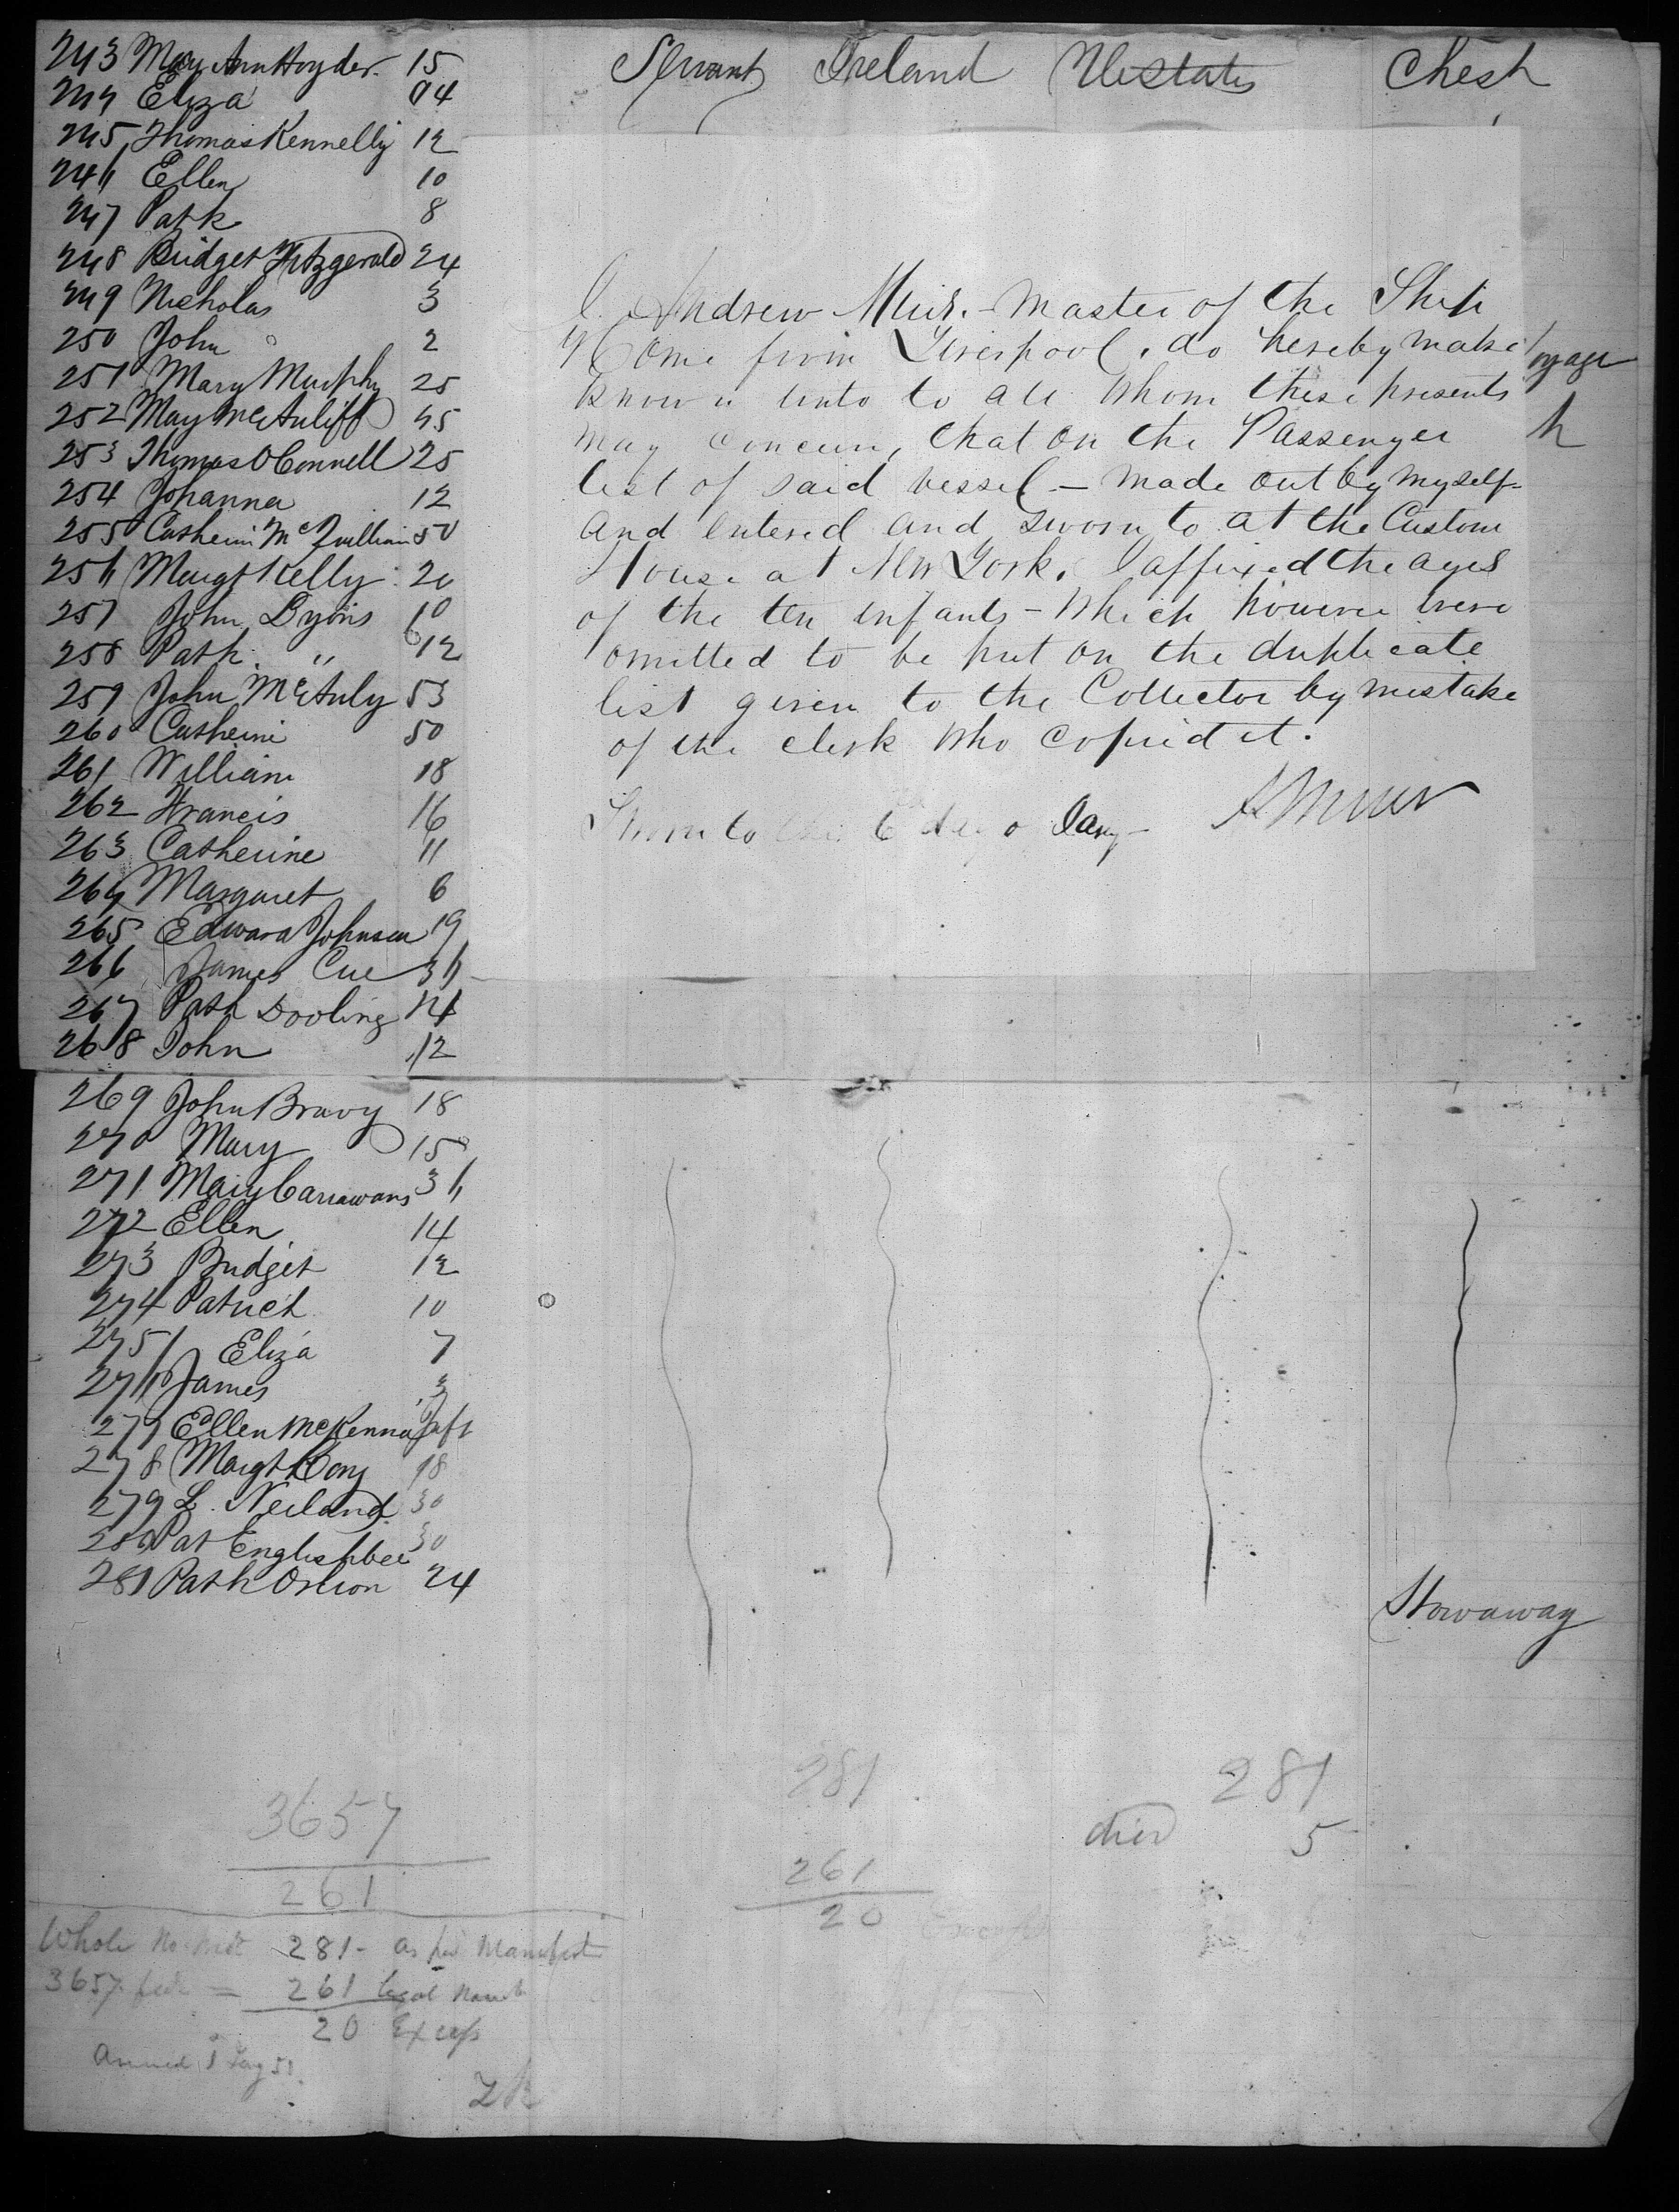 243 Mary Ann Hoyder 15 Servant Ireland UeStates Chest
244 Eliza 04
245 Thomas Kennelly 12
246 Ellen 10
247 Patk 8
248 Bridget Fitzgerald 24
249 Nicholas 3
250 John " 2
251 Mary Murphy 25
252 Mary McAuliff 45
253 Thomas OConnell 25
254 Johanna 12
255 Catherine McQuillian 50
256 Margt Kelly 20
257 John Lyons 10
258 Patk " 12
259 John McAuly 53
260 Catherine 50
261 William 18
262 Francis 16
263 Catherine 11
264 Margaret 6
265 Edward Johnson 19
266 James Cue 36
267 Patk Dooling 14
268 John 12
269 John Bravy 18
270 Mary 15
271 Mary Carrawans 36
272 Ellen 14
273 Bridget 12
274 Patrick 10
275 Eliza 7
276 James 3
277 Ellen McKenna Inft
278 Margt Cony 18
279 L. Neiland 30
280 Pat Englishbee 30
281 Patk Orlion 24 Stowaway
I. Andrew Muir. - Master of the Ship
Rome from Liverpool, do hereby make
known unto to all whom these presents
may concern, that on the Passenger
list of said vessel - made out by myself -
and entered and sworn to at the Custom
House at New York. I affixed the ages
of the ten infants - which however were
omitted to be put on the duplicate
list given to the Collector by mistake
of the clerk who copied it.
AMuir
Sworn to this 6 day o Jany -
voyage
h
3657
261
281
261
20
281
died 5
Whole No. 281 - as per Manifest
3657 feet = 261 legal Numb
20 Excess
Arrived 1 Jany 51.